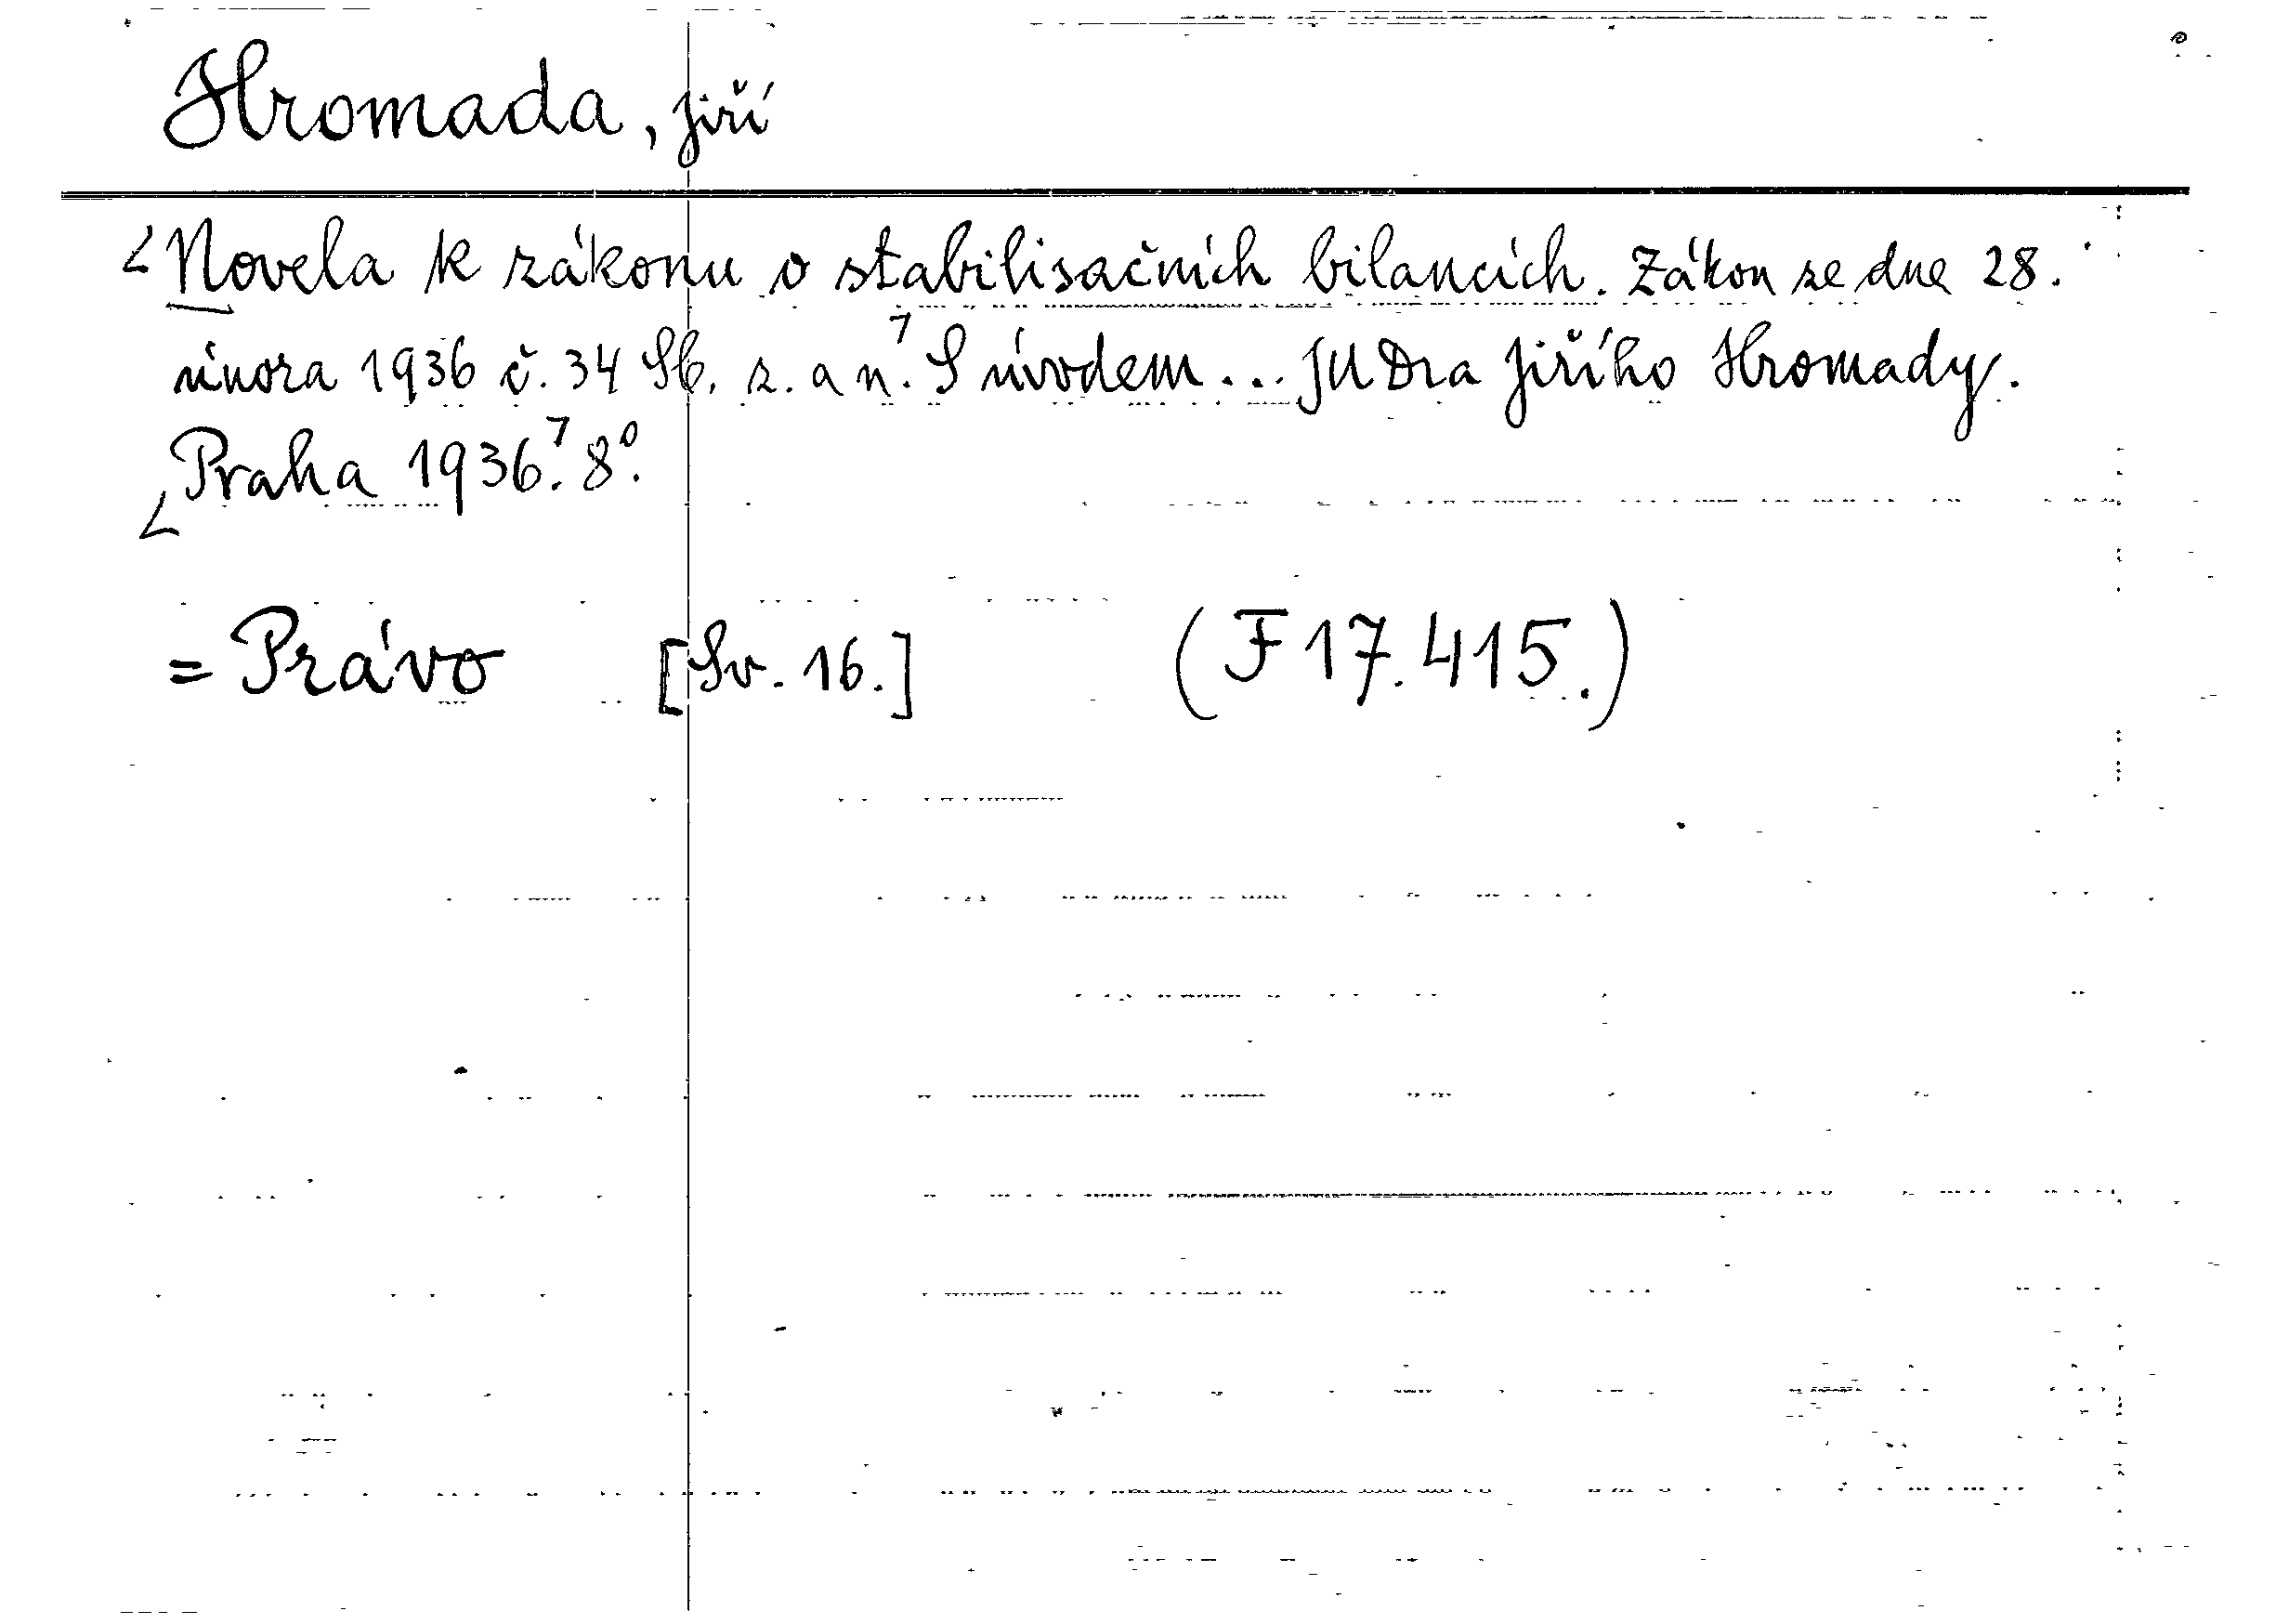 Hromada, Jiří
Novela k zákonu o stabilisačních bilancích. Zákon ze dne 28.
února 1936 č. 34 Sb. z. a n. S úvodem... JUDra Jiřího Hromady.
Praha 1936. 8°.
= Právo [Sv. 16.] (F 17.415.)